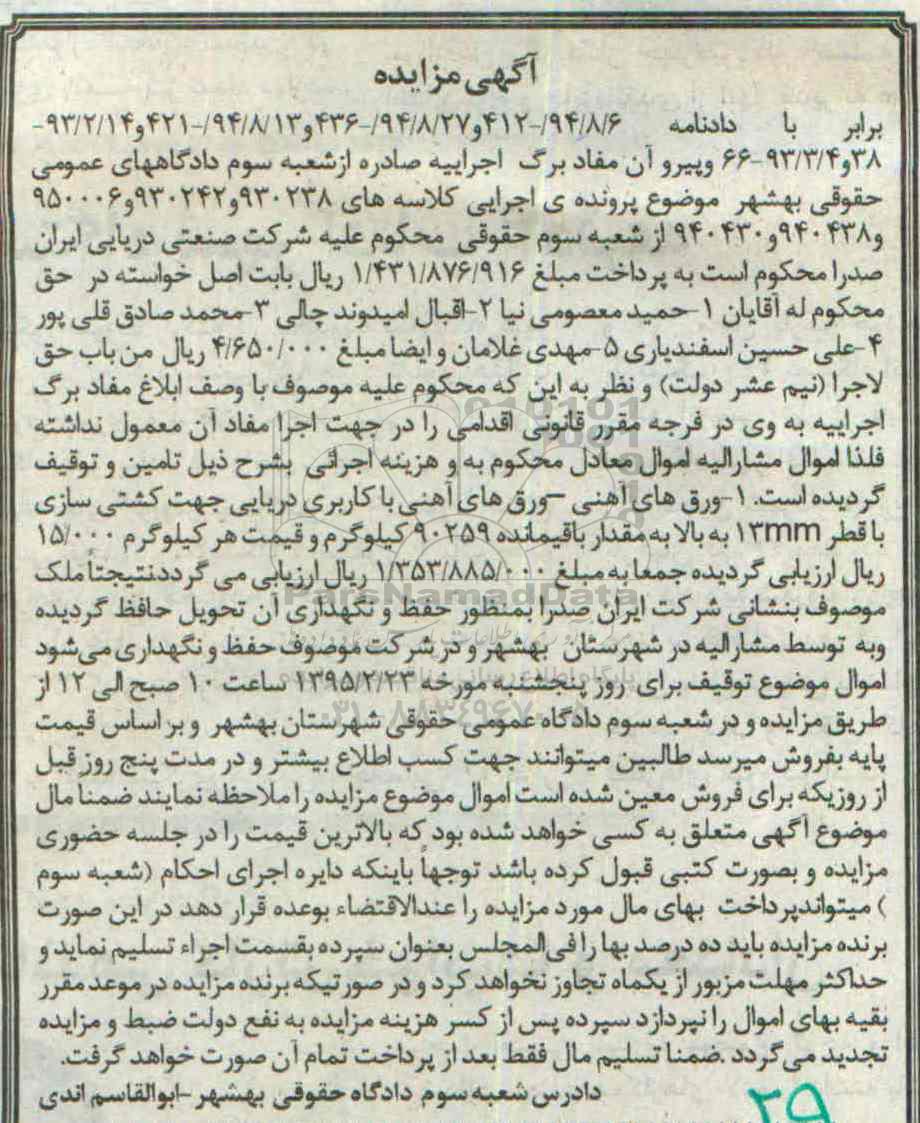 آگهی مزایده
برابر با دادنامه ۹۴/۸/۶-/۴۱۲و۹۴/۸/۲۷-/۴۳۶و۹۴/۸/۱۳-/۴۲۱و۹۳/۲/۱۴-
۳۸و۹۳/۳/۴-۶۶ وپیرو آن مفاد برگ اجراییه صادره ازشعبه سوم دادگاههای عمومی
حقوقی بهشهر موضوع پرونده ی اجرایی کلاسه های ۹۳۰۲۳۸و۹۳۰۲۴۲و۹۵۰۰۰۶
و۹۴۰۴۳۸و۹۴۰۴۳۰ از شعبه سوم حقوقی محکوم علیه شرکت صنعتی دریایی ایران
صدرا محکوم است به پرداخت مبلغ ۱/۴۳۱/۸۷۶/۹۱۶ ریال بابت اصل خواسته در حق
محکوم له آقایان ۱-حمید معصومی نیا ۲-اقبال امیدوند چالی ۳-محمد صادق قلی پور
۴-علی حسین اسفندیاری ۵-مهدی غلامان و ایضا مبلغ ۴/۶۵۰/۰۰۰ ریال من باب حق
لاجرا (نیم عشر دولت) و نظر به این که محکوم علیه موصوف با وصف ابلاغ مفاد برگ
اجراییه به وی در فرجه مقرر قانونی اقدامی را در جهت اجرا مفاد آن معمول نداشته
فلذا اموال مشارالیه اموال معادل محکوم به و هزینه اجرائی بشرح ذیل تامین و توقیف
گردیده است. ۱-ورق های آهنی –ورق های آهنی با کاربری دریایی جهت کشتی سازی
با قطر ۱۳mm به بالا به مقدار باقیمانده ۹۰۲۵۹ کیلوگرم و قیمت هر کیلوگرم ۱۵/۰۰۰
ریال ارزیابی گردیده جمعا به مبلغ ۱/۳۵۳/۸۸۵/۰۰۰ ریال ارزیابی می گرددنتیجتاً ملک
موصوف بنشانی شرکت ایران صدرا بمنظور حفظ و نگهداری آن تحویل حافظ گردیده
وبه توسط مشارالیه در شهرستان بهشهر و در شرکت موصوف حفظ و نگهداری می‌شود
اموال موضوع توقیف برای روز پنجشنبه مورخه ۱۳۹۵/۲/۲۳ ساعت ۱۰ صبح الی ۱۲ از
طریق مزایده و در شعبه سوم دادگاه عمومی حقوقی شهرستان بهشهر و بر اساس قیمت
پایه بفروش میرسد طالبین میتوانند جهت کسب اطلاع بیشتر و در مدت پنج روز قبل
از روزیکه برای فروش معین شده است اموال موضوع مزایده را ملاحظه نمایند ضمنا مال
موضوع آگهی متعلق به کسی خواهد شده بود که بالاترین قیمت را در جلسه حضوری
مزایده و بصورت کتبی قبول کرده باشد توجهاً باینکه دایره اجرای احکام (شعبه سوم
) میتواندپرداخت بهای مال مورد مزایده را عندالاقتضاء بوعده قرار دهد در این صورت
برنده مزایده باید ده درصد بها را فی المجلس بعنوان سپرده بقسمت اجراء تسلیم نماید و
حداکثر مهلت مزبور از یکماه تجاوز نخواهد کرد و در صورتیکه برنده مزایده در موعد مقرر
بقیه بهای اموال را نپردازد سپرده پس از کسر هزینه مزایده به نفع دولت ضبط و مزایده
تجدید می گردد .ضمنا تسلیم مال فقط بعد از پرداخت تمام آن صورت خواهد گرفت.
دادرس شعبه سوم دادگاه حقوقی بهشهر -ابوالقاسم اندی
۲۹
ParsNamadData